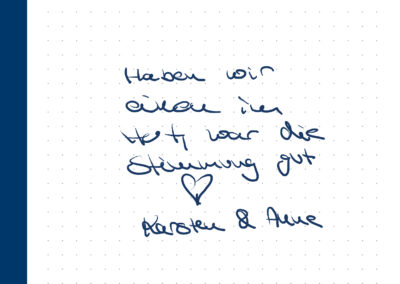 Haben wir
einen im
Tee, war die
Stimmung gut
Karsten & Anne